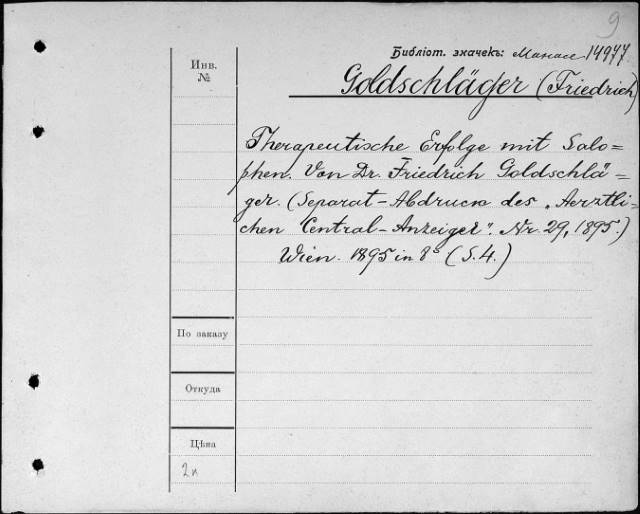 9
Библіот. значекъ: Манасс 14977.
Инв.
№
Goldschläger (Friedrich)
Therapeutische Erfolge mit Salo=
phen. Von Dr. Friedrich Goldschlä=
ger. (Separat-Abdruck des „Aerztli=
chen Central-Anzeiger". Nr. 29, 1895.)
Wien. 1895 in 8° (S. 4.)
По заказу
Откуда
Цѣна
2к